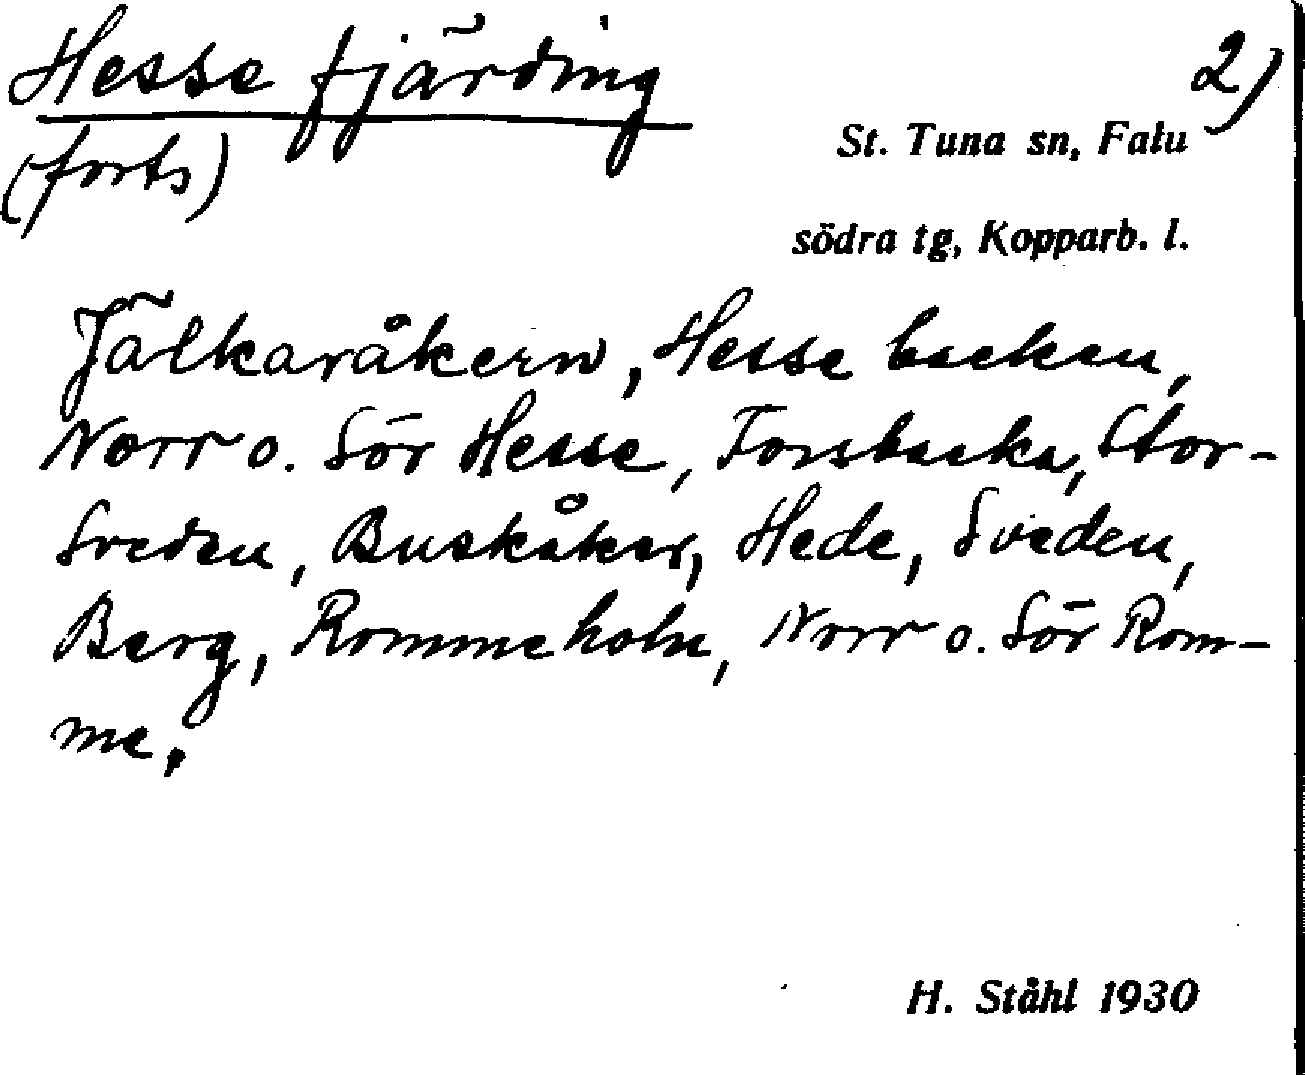 Hesse fjärding
2)
(forts)
St. Tuna sn, Falu
södra tg, Kopparb. l.
Jälkaråkern, Hesse backen,
Norr o. Sör Hesse, Tonsbacka, Stor-
Sveden, Buskåker, Hede, Sveden,
Berg, Rommeholm, Norr o. Sör Rom-
me.
H. Ståhl 1930